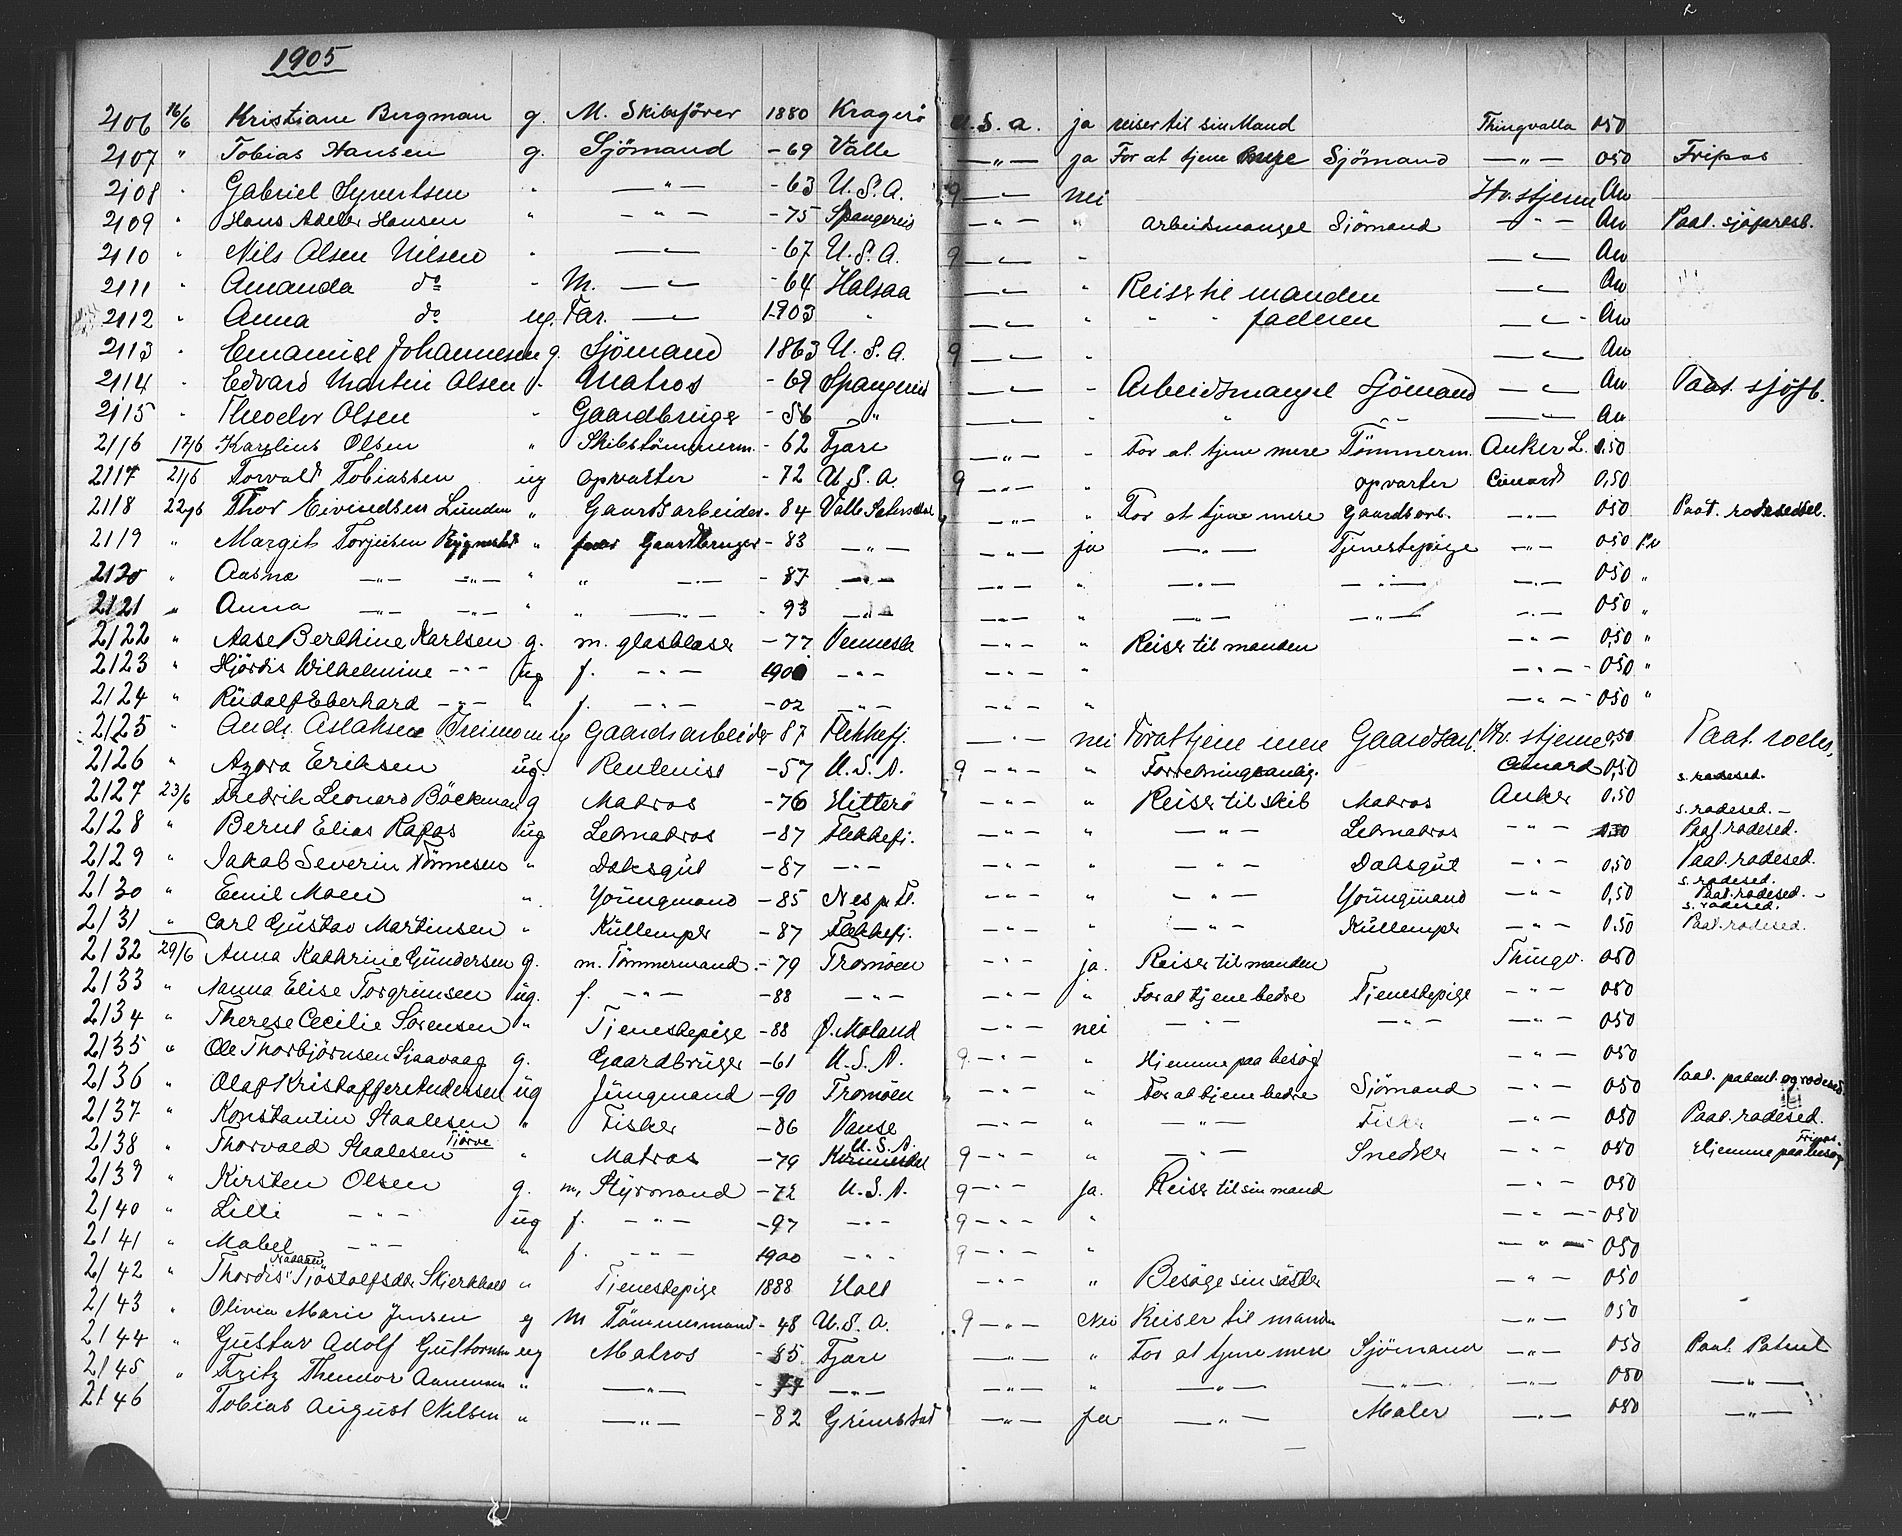 1905
2106 16/6 Kristiane Bergman g. M. Skibsförer 1880 Kragerö U.S.a. ja reiser til sin Mand Thingvalla 050
2107 " Tobias Hansen g. Sjömand -69 Valle —"— ja For at tjene mere Sjömand —"— 050 Fripas
2108 " Gabriel Syvertsen " —"— -63 U.S.A. 9 —"— nei Hv. stjerne An
2109 " Hans Adeler Hansen " —"— -75 Spangereid —"— " arbeidsmangel Sjömand —"— An Paat. sjöfartsb.
2110 " Nils Olsen Nilsen " —"— -67 U.S.A. 9 —"— " —"— An
2111 " Amanda do " M. —"— -64 Halsaa —"— " Reiser til manden —"— An
2112 " Anna do ug. Far. —"— 1903 " —"— " " " faderen —"— An
2113 " Emanuel Johannesen g. Sjömand 1863 U.S.A. 9 —"— " —"— An
2114 " Edvard Martin Olsen " Matros -69 Spangereid —"— " Arbeidsmangel Sjömand —"— An Paat. sjöfb.
2115 " Theodor Olsen " Gaardbruger -56 " —"— " " " —"— An
2116 17/6 Karelius Olsen " Skibstömmerm. -62 Fjære —"— " For at tjene mere Tömmerm. Anker L. 0.50
2117 21/6 Torvald Tobiassen ug opvarter -72 U.S.A. 9 —"— " opvarter Cunard 0,50
2118 22/6 Thor Eivindsen Lunden " Gaardsarbeider -84 Valle —"— " For at tjene mere Gaardsarb. —"— 050 Paat. rodeseddel.
2119 " Margit Torjusen Rygnestad " Gaardbruger -83 —"— —"— ja —"— Tjenestepige —"— 050
2120 " Aasne —"— —"— " " —"— -87 —"— —"— " —"— —"— —"— 050 "
2121 " Anna —"— —"— " " —"— -93 —"— —"— " —"— —"— —"— 050 "
2122 " Aase Berthine Karlsen g. m. glasblaser -77 Vennesla —"— " Reiser til manden —"— 0,50 "
2123 " Hjördis Wilhelmine —"— ug f. —"— 1900 —"— —"— " —"— 050 "
2124 " Rudolf Eberhard —"— " f. —"— -02 —"— —"— " —"— 050 "
2125 " Aslaksen ug Gaardsarbeider 87 Flekkefj. —"— nei For at tjene mere Gaardsarb. Hv. stjerne 0,50 Paat. rodes,
2126 " Azora Eriksen ug. Rentenist -57 U.S.A. 9 —"— " Forretningsanlig. Cunard 0,50
2127 23/6 Fredrik Leonard Böckman g Matros -76 Hitterö —"— " Reiser til skib Matros Anker 0.50 s. rodesed.
2128 " Bernt Elias Rafos ug Letmatros -87 Flekkefj. —"— " —"— Letmatros —"— s. rodesed. — Paat. rodesed.
2129 " Jakob Severin Tönnesen " Daksgut -87 —"— —"— " —"— Daksgut —"— 0,50 Paat. rodesed.
2130 " Emil Moen " Youngmand -85 Nes pr Fl. —"— " —"— Youngmand —"— 0,50 s. rodesed. Paat. rodesed.
2131 " Carl Gustav Martinsen " Kullemper -87 Flekkefj. —"— " —"— Kullemper —"— 0.50 s. rodesed. Paat. rodesed.
2132 29/6 Anna Kathrine Gundersen g. m. Tömmermand -79 Tromöen —"— ja. Reiser til manden Thingv. 050
2133 " Nanna Elise Torgrimsen ug. f. —"— -88 —"— —"— " For at tjene bedre Tjenestepige —"— 050
2134 " Therese Cecilie Sörensen " Tjenestepige -88 Ø. Moland —"— nei —"— —"— —"— 050
2135 " Ole Thorbjörnsen Sjaavaag g. Gaardbruger -61 U.S.A. 9 —"— " Hjemme paa besög —"— 050
2136 " Olaf Kristoffer Andersen ug Jungmand -90 Tromöen —"— " For at tjene bedre Sjömand —"— 050 Paat. patent. og rodesed.
2137 " Konstantin Staalesen " Fisker -86 Vanse —"— " —"— Fisker —"— 050 Paat. rodesed.
2138 " Thorvald Staalesen Tjörve " Matros -79 U.S.A. 9 —"— " —"— Snedker —"— 050 Fripas. Hjemme paa besög
2139 " Kirsten Olsen g. m. Styrmand -72 U.S.A. 9 —"— ja. Reiser til sin mand —"— 050
2140 " Lilli —"— ug f. —"— -97 —"— 9 —"— " —"— 050
2141 " Mabel —"— " f. —"— 1900 —"— 9 —"— " —"— 050
2142 " Thordis Tjöstolfsdtr. " Tjenestepige 1888 Holt —"— " Besöge sin söster —"— 050
2143 " Olivia Marie Jensen g M Tömmermand -48 U.S.A. 9 —"— Nei Reiser til manden —"— 050
2144 " Gustav Adolf Guttormsen ug Matros -85 Fjære —"— " For at tjene mere Sjömand —"— 050 Paat. Patent
2145 " Fritz Theodor Aanensen " —"— —"— —"— " —"— —"— —"— 050 —"—
2146 Tobias August Nilsen " —"— -82 Grimstad —"— ja —"— Maler —"— 050 —"—